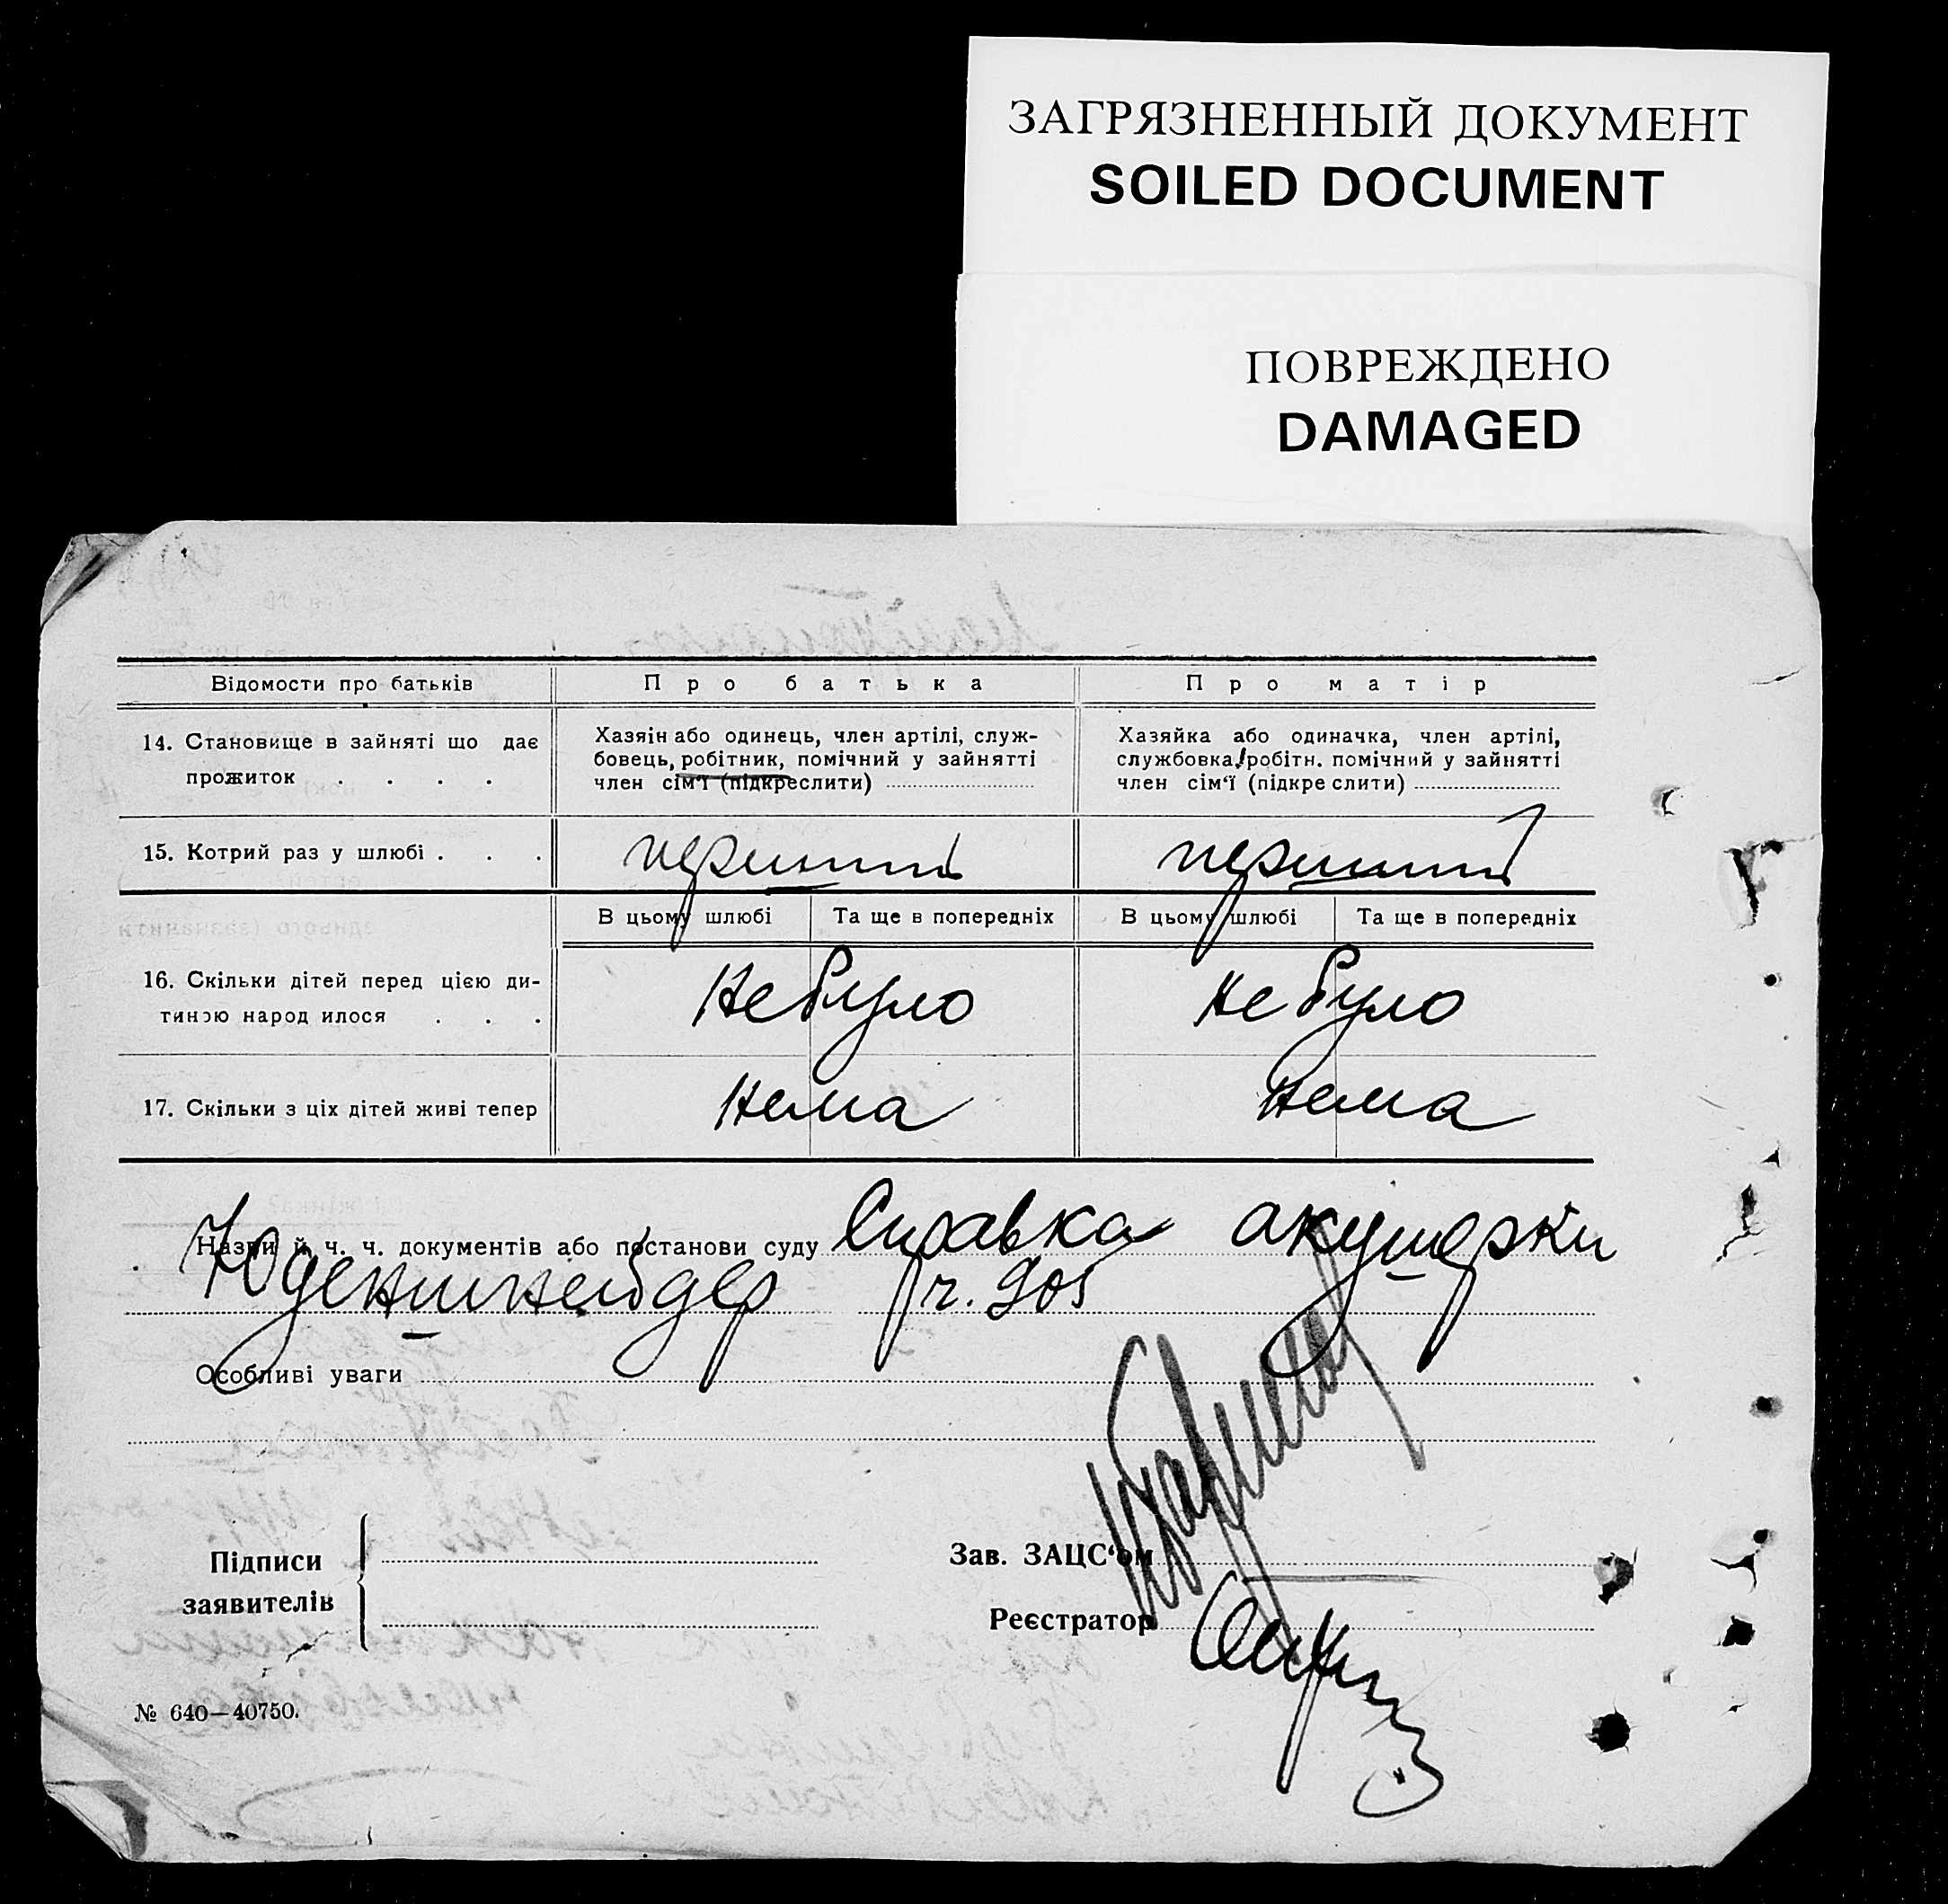 ЗАГРЯЗНЕННЫЙ ДОКУМЕНТ
SOILED DOCUMENT
ПОВРЕЖДЕНО
DAMAGED
Відомости про батьків
Про батька
Про матір
14. Становище в зайняті що дає
прожиток . . . .
Хазяїн або одинець, член артілі, служ-
бовець, робітник, помічний у зайнятті
член сім'ї (підкреслити)
Хазяйка або одиначка, член артілі,
службовка, робітн. помічний у зайнятті
член сім'ї (підкреслити)
15. Котрий раз у шлюбі . . .
перший
перший
В цьому шлюбі
Та ще в попередніх
В цьому шлюбі
Та ще в попередніх
16. Скільки дітей перед цією ди-
тиною народилося . . .
не було
не було
17. Скільки з ціх дітей живі тепер
нема
нема
Назви й ч. ч. документів або постанови суду Справка акушерки
Юденшнейдер
Особливі уваги
Підписи
заявителів
Зав. ЗАЦС'ом
Реєстратор
№ 640—40750.